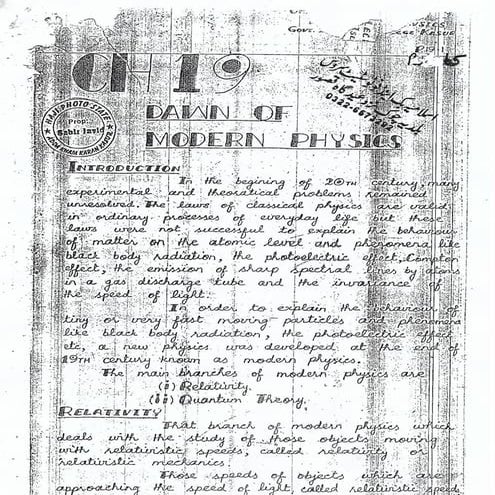 Gov
CH 19
DAWN OF
MODERN PHYSICS
HAJI PHOTO STATE
Prop:
Sabir Javid
INTRODUCTION
In the begining of 20TH century, many
experimental and theoratical problems remained
unresolved. The laws of classical physics are valid
in ordinary processes of everyday life but these
laws were not successful to explain the behaviour
of matter on the atomic level and phenomena like
black body radiation, the photoelectric effect, Compton
effect, the emission of sharp spectral lines by atoms
in a gas discharge tube and the invariance of
the speed of light.
In order to explain the behaviour of
tiny or very fast moving particles and phenomena
like black body radiation, the photoelectric effect
etc, a new physics was developed at the end of
19TH century known as modern physics.
The main branches of modern physics are
(i) Relativity
(ii) Quantum Theory.
RELATIVITY
That branch of modern physics which
deals with the study of those objects moving
with relativistic speeds, called relativity or
relativistic mechanics.
Those speeds of objects which are
approaching the speed of light, called relativistic speeds